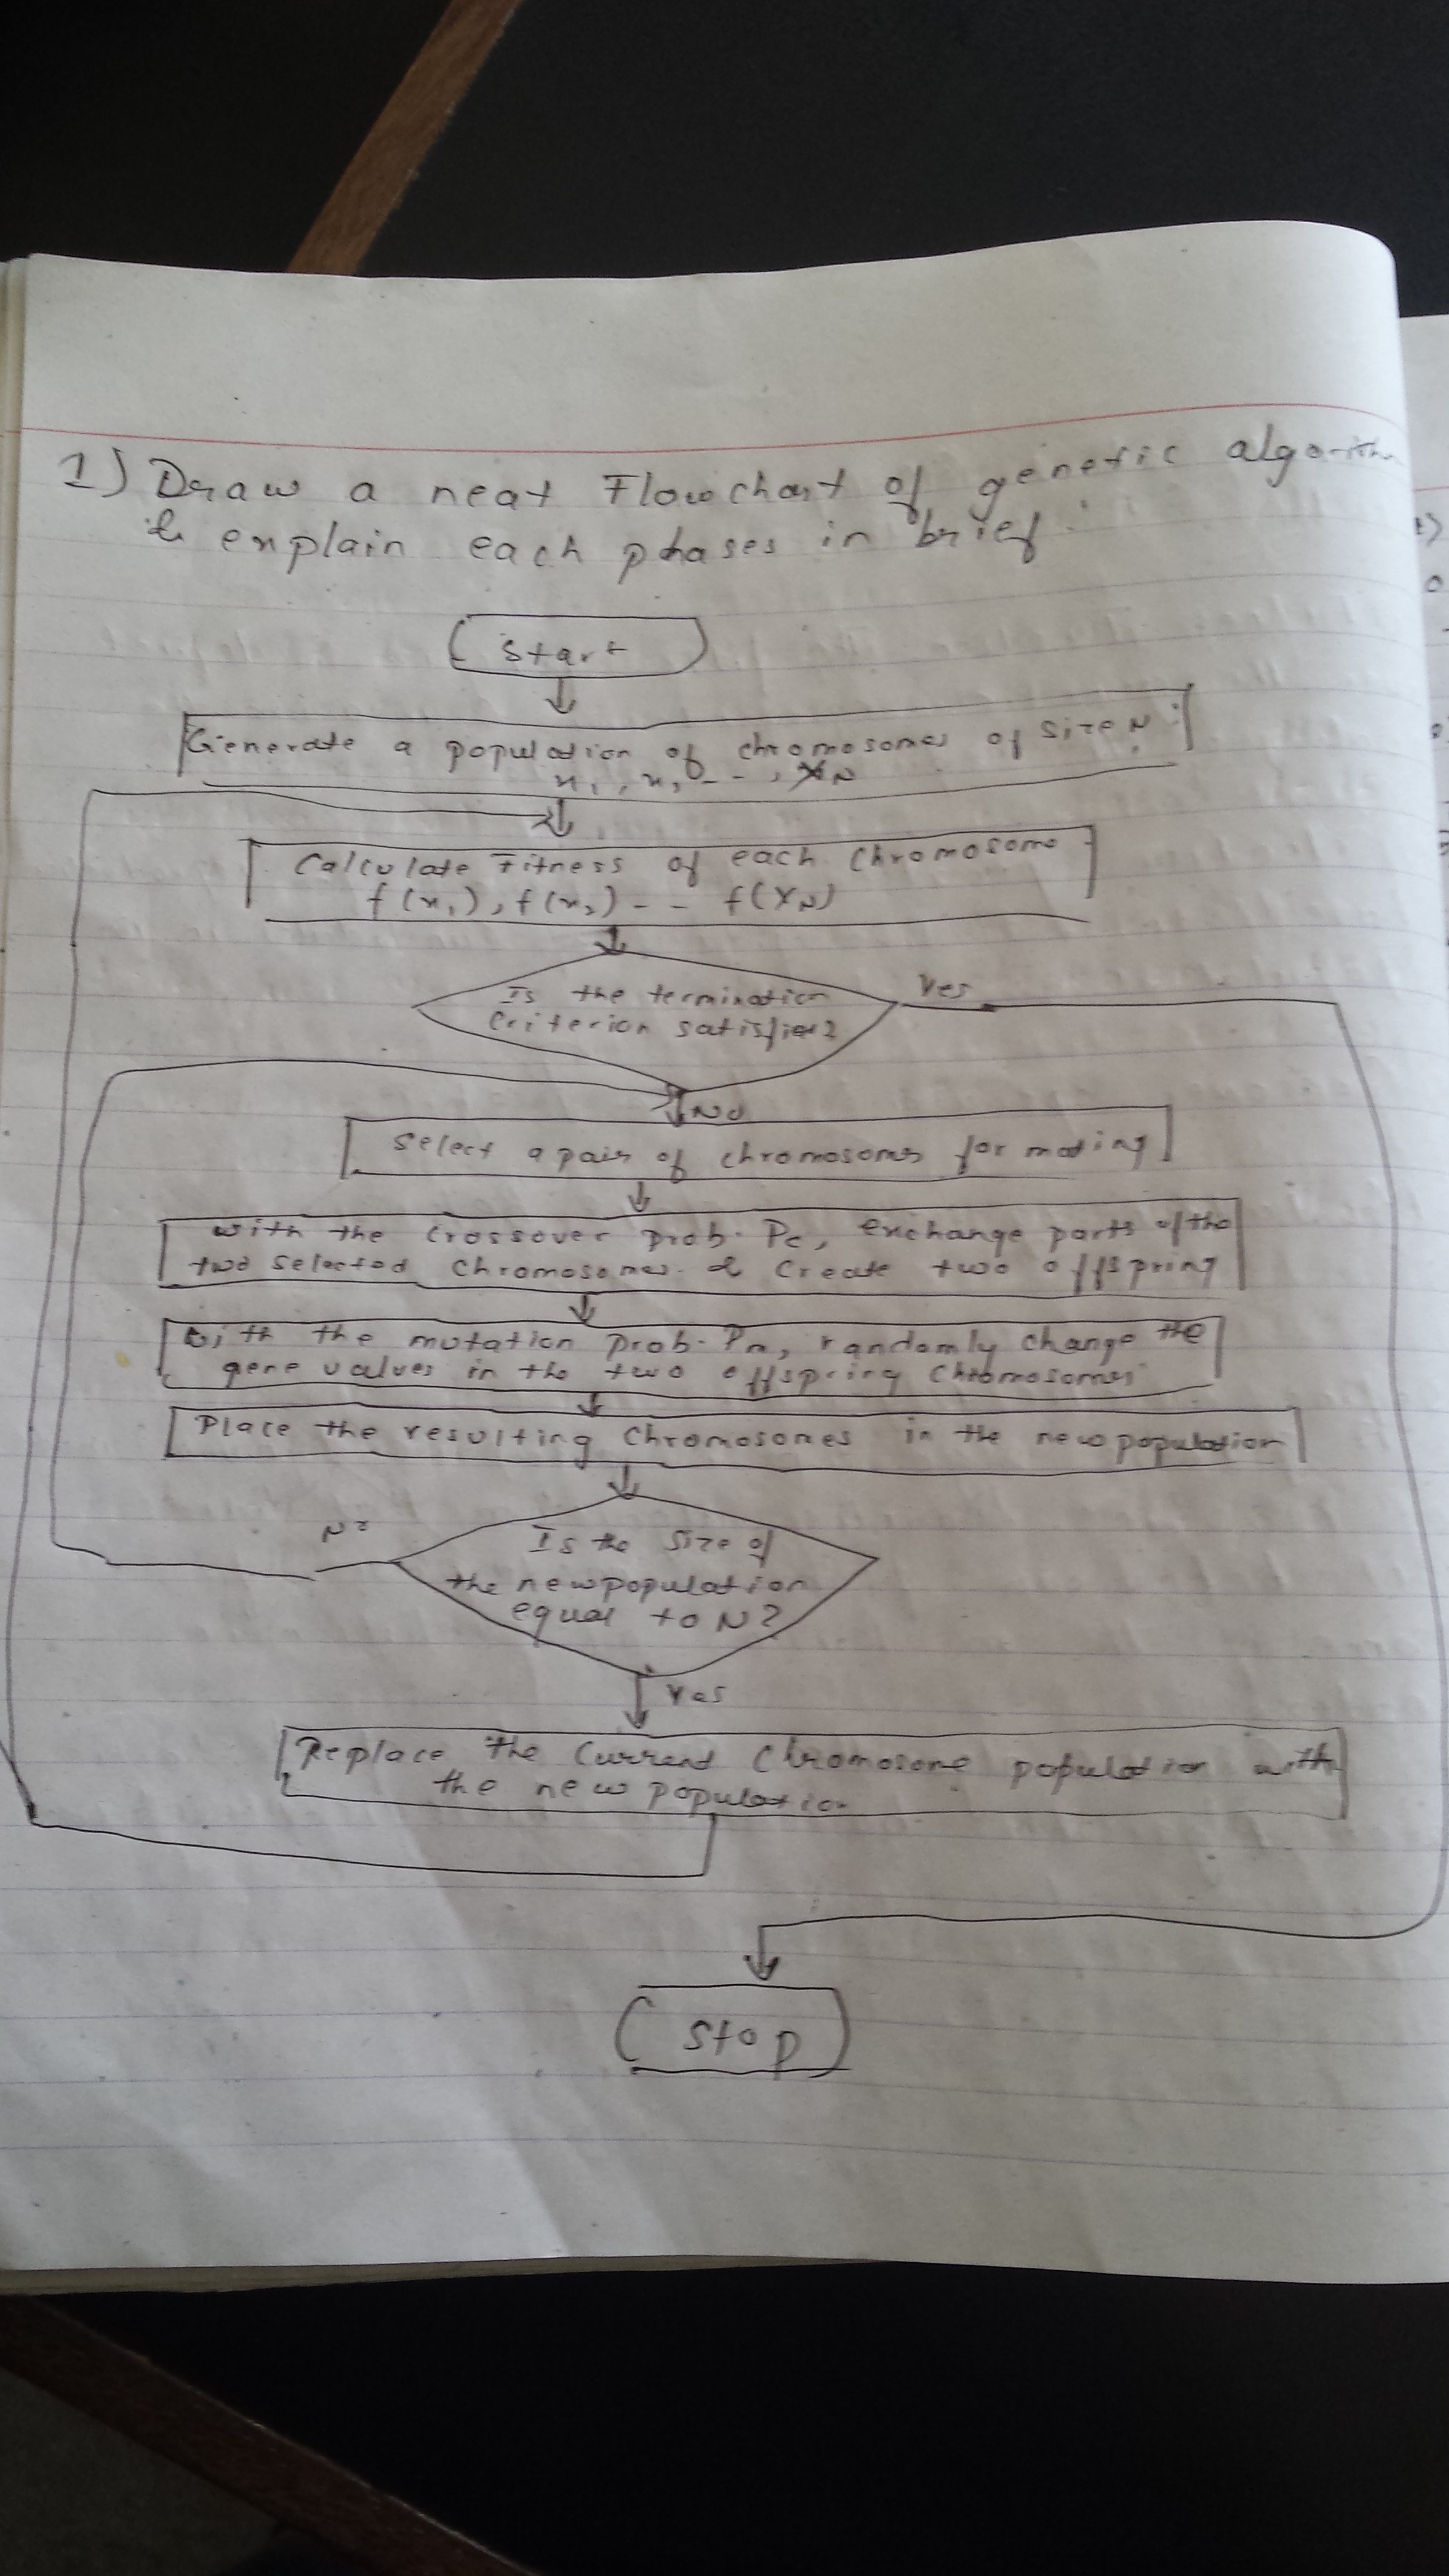 1) Draw a neat Flowchart of genetic algorithm
& explain each phases in brief.
Start
Generate a population of chromosomes of size N:
x1, x2 - - , XN
Calculate Fitness of each Chromosome
f(x1), f(x2) - - f(XN)
Is the termination
Criterion satisfied?
Yes
No
Select a pair of chromosomes for mating
with the Crossover prob. Pc, exchange parts of the
two selected Chromosomes & Create two offspring
with the mutation prob. Pm, randomly change the
gene values in the two offspring Chromosomes
Place the resulting Chromosomes in the new population
No
Is the Size of
the new population
equal to N?
Yes
Replace the Current Chromosome population with
the new population
Stop